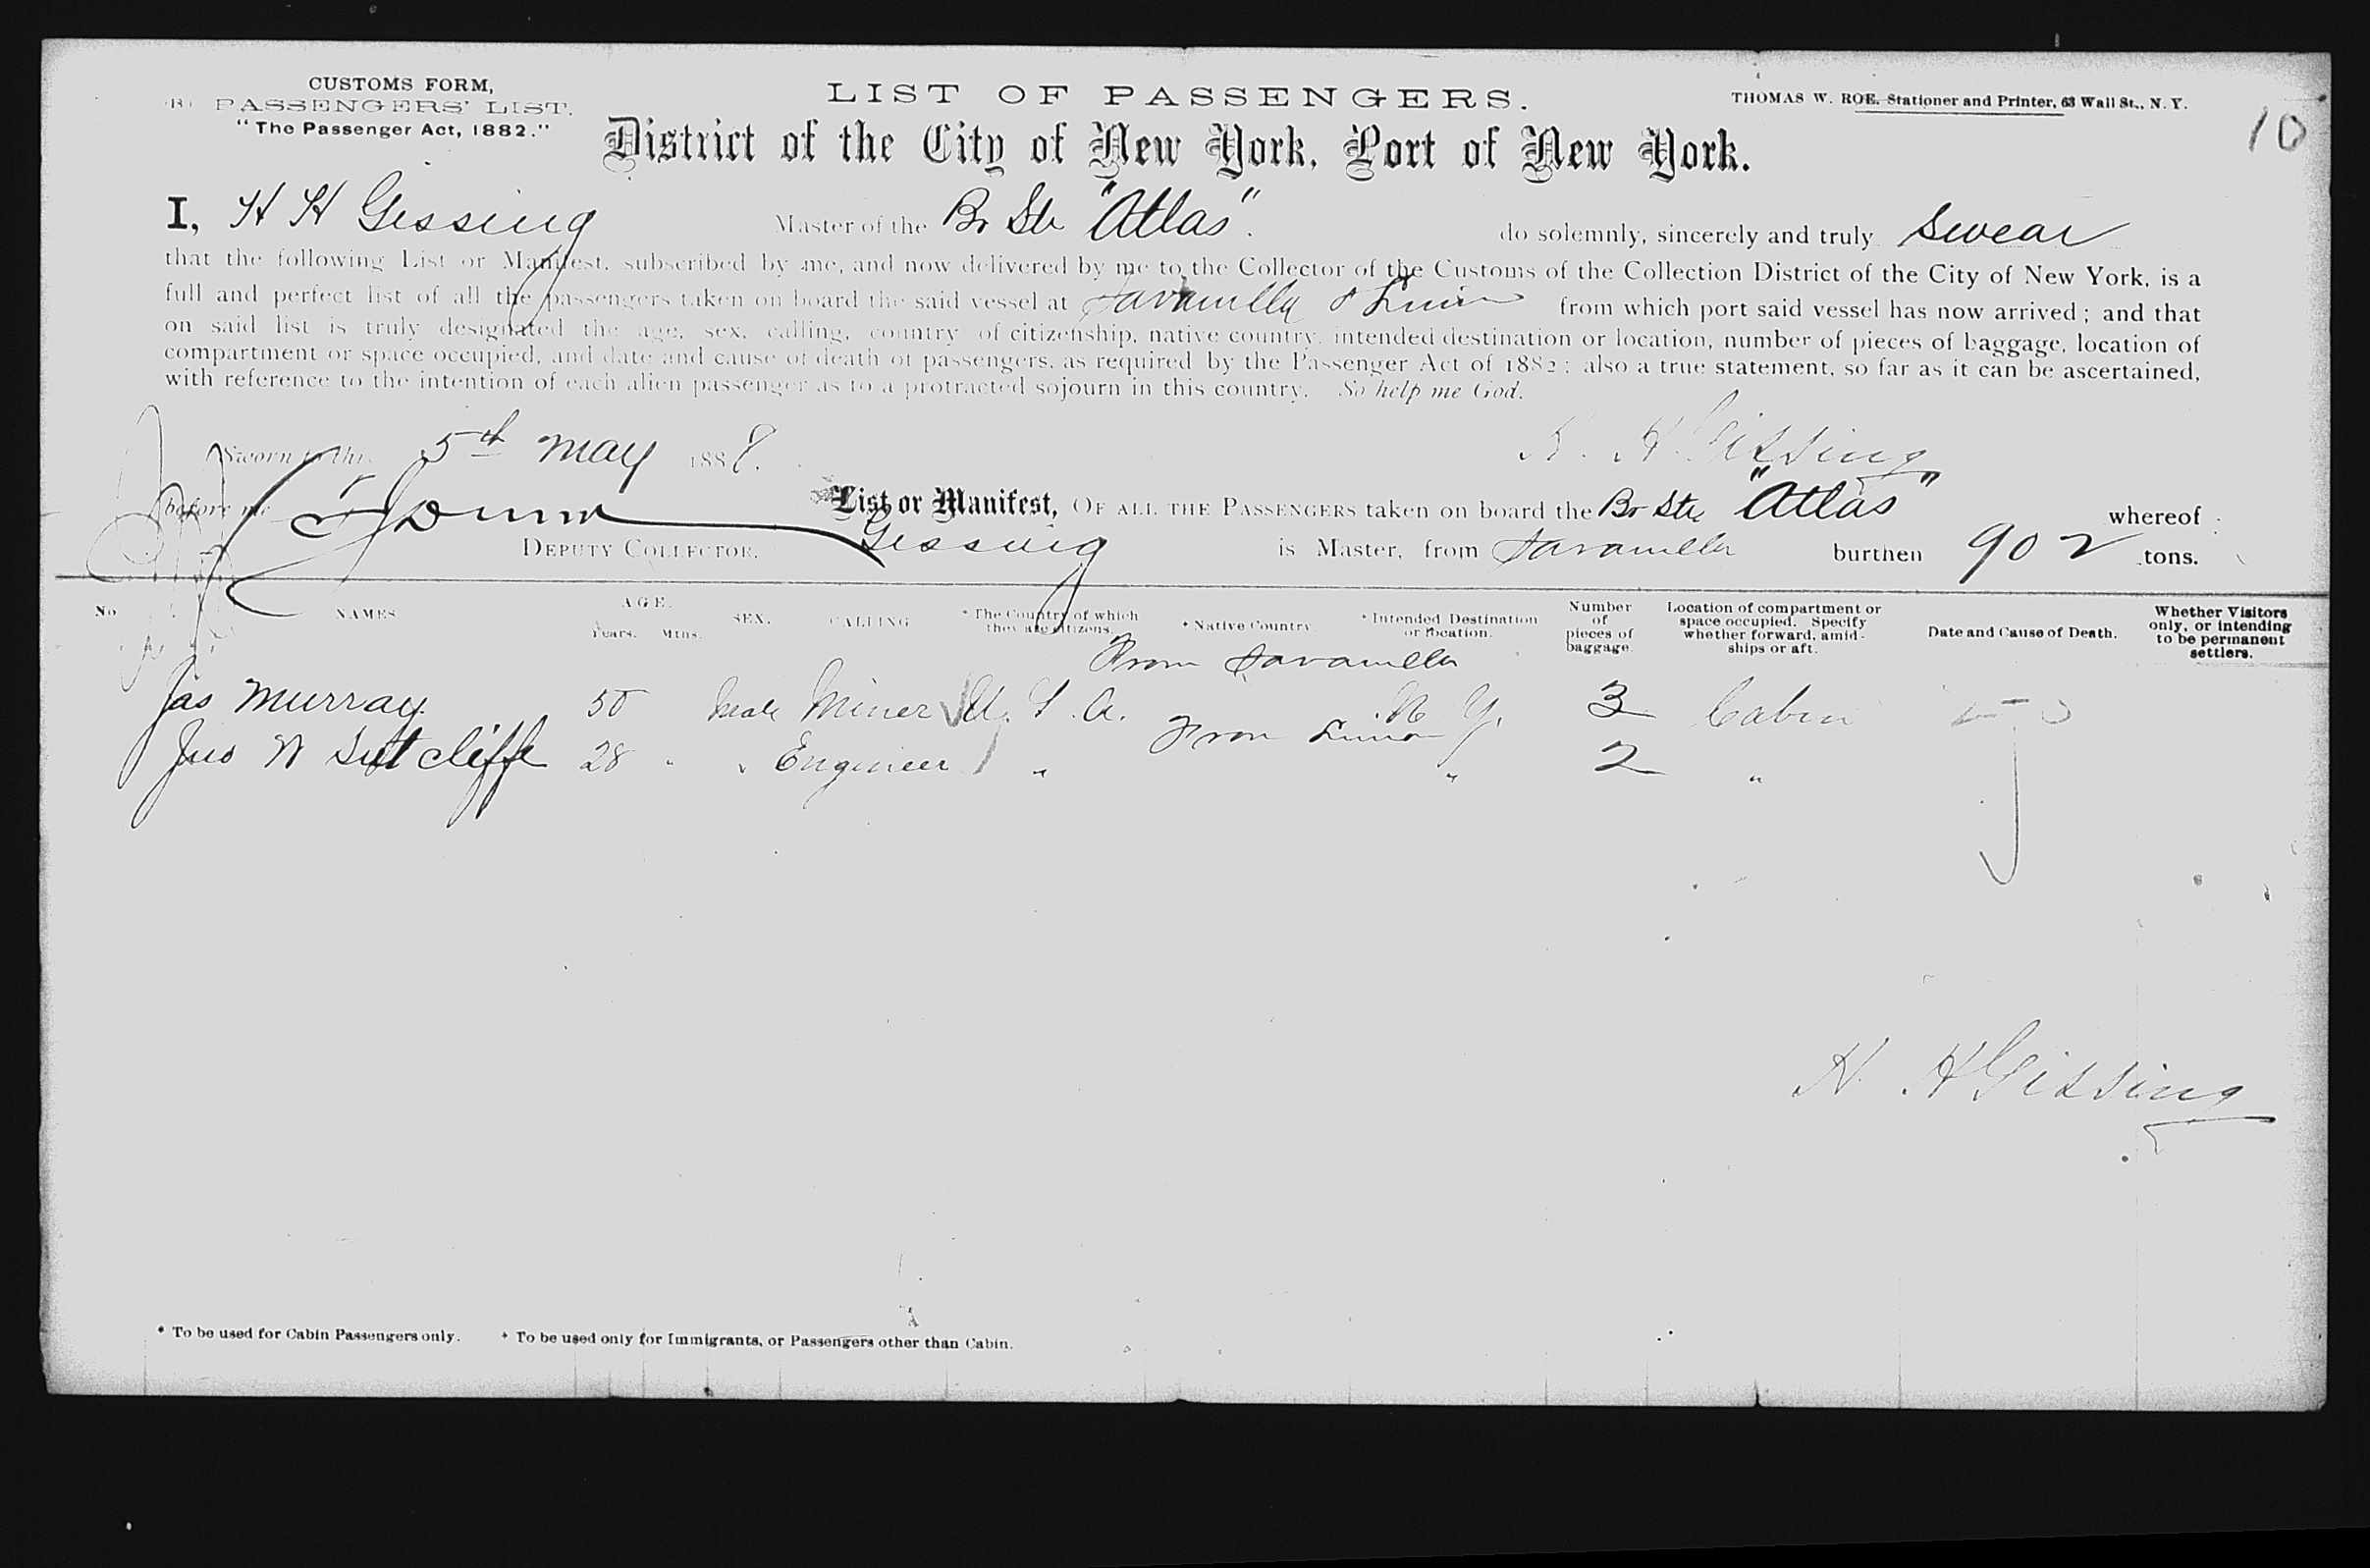 CUSTOMS FORM,
(B) PASSENGERS' LIST.
"The Passenger Act, 1882."
LIST OF PASSENGERS.
THOMAS W. ROE, Stationer and Printer, 63 Wall St., N. Y.
10
District of the City of New York, Port of New York.
I, H H Gissing Master of the Br Str "Atlas". do solemnly, sincerely and truly swear
that the following List or Manifest, subscribed by me, and now delivered by me to the Collector of the Customs of the Collection District of the City of New York, is a
full and perfect list of all the passengers taken on board the said vessel at Savanilla & Limon from which port said vessel has now arrived; and that
on said list is truly designated the age, sex, calling, country of citizenship, native country, intended destination or location, number of pieces of baggage, location of
compartment or space occupied, and date and cause of death of passengers, as required by the Passenger Act of 1882; also a true statement, so far as it can be ascertained,
with reference to the intention of each alien passenger as to a protracted sojourn in this country. So help me God.
Sworn to this 5th May 1888. H. H Gissing
before me
List or Manifest, OF ALL THE PASSENGERS taken on board the Br Str "Atlas" whereof
DEPUTY COLLECTOR. Gissing is Master, from Savanilla burthen 902 tons.
No NAMES AGE. Years. Mths. SEX. CALLING * The Country of which they are citizens. * Native Country * Intended Destination or location. Number of pieces of baggage. Location of compartment or space occupied. Specify whether forward, amidships or aft. Date and Cause of Death. Whether Visitors only, or intending to be permanent settlers.
From Savanilla
Jas Murray 50 Male Miner U. S. A. N Y. 3 Cabin
From Limon
Jno N Sutcliffe 28 " " Engineer " " 2 "
H. H Gissing
* To be used for Cabin Passengers only. * To be used only for Immigrants, or Passengers other than Cabin.